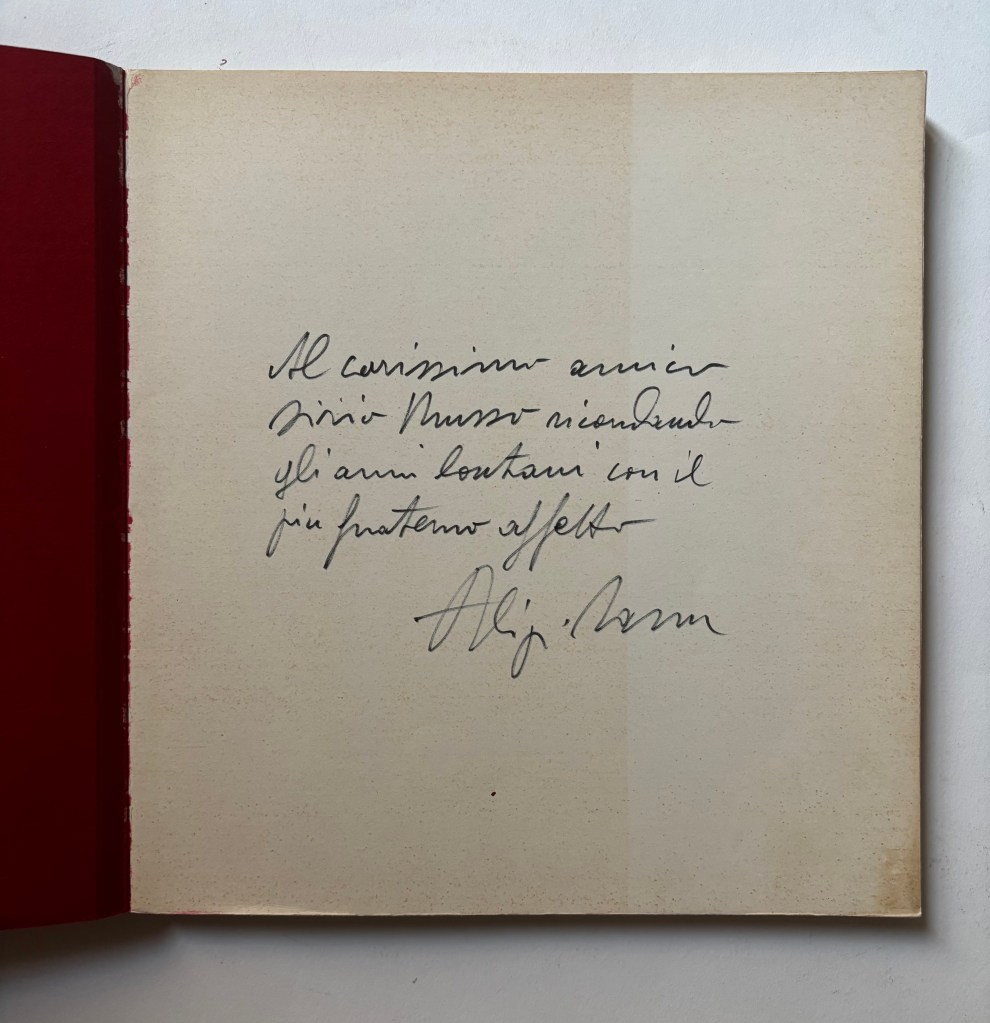 Al carissimo amico
Sirio Musso ricordando
gli anni lontani con il
più fraterno affetto